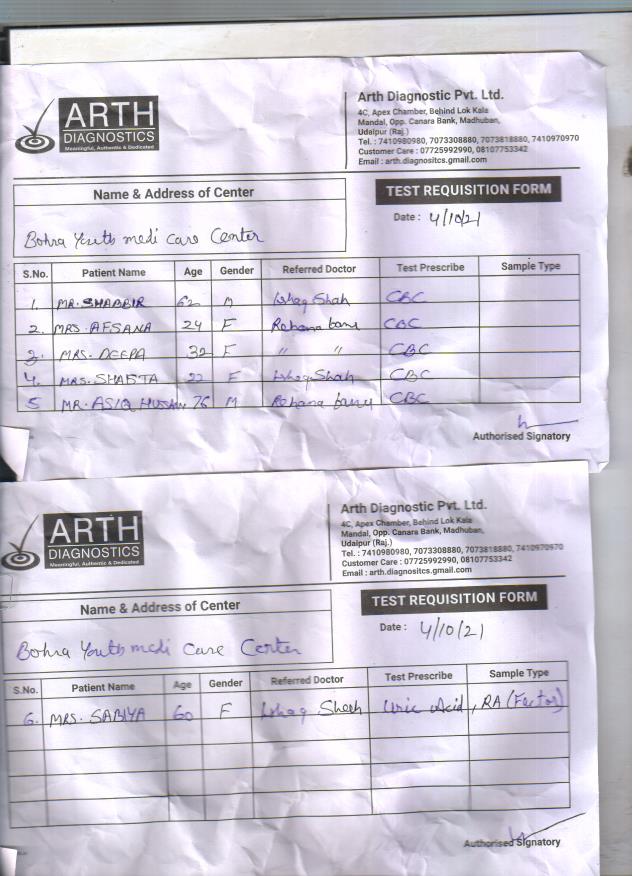 ARTH
DIAGNOSTICS
Meaningful, Authentic & Dedicated
Arth Diagnostic Pvt. Ltd.
4C, Apex Chamber, Behind Lok Kala
Mandal, Opp. Canara Bank, Madhuban,
Udaipur (Raj.)
Tel. : 7410980980, 7073308880, 7073818880, 7410970970
Customer Care : 07725992990, 08107753342
Email : arth.diagnositcs.gmail.com
Name & Address of Center
TEST REQUISITION FORM
Date : 4/10/21
Bohra Youth medi care Center
S.No. Patient Name Age Gender Referred Doctor Test Prescribe Sample Type
1. MR. SHABBIR 62 M Ishaq Shah CBC
2. MRS. AFSANA 24 F Rehana banu CBC
3. MRS. DEEPA 32 F " " CBC
4. MRS. 22 F Ishaq Shah CBC
5 MR. ASIQ HUSAIN 76 M Rehana banu CBC
Authorised Signatory
ARTH
DIAGNOSTICS
Meaningful, Authentic & Dedicated
Arth Diagnostic Pvt. Ltd.
4C, Apex Chamber, Behind Lok Kala
Mandal, Opp. Canara Bank, Madhuban,
Udaipur (Raj.)
Tel. : 7410980980, 7073308880, 7073818880, 7410970970
Customer Care : 07725992990, 08107753342
Email : arth.diagnositcs.gmail.com
Name & Address of Center
TEST REQUISITION FORM
Date : 4/10/21
Bohra Youth medi care Center
S.No. Patient Name Age Gender Referred Doctor Test Prescribe Sample Type
6. MRS. SABIYA 60 F Ishaq Shah Uric Acid, RA (Factor)
Authorised Signatory